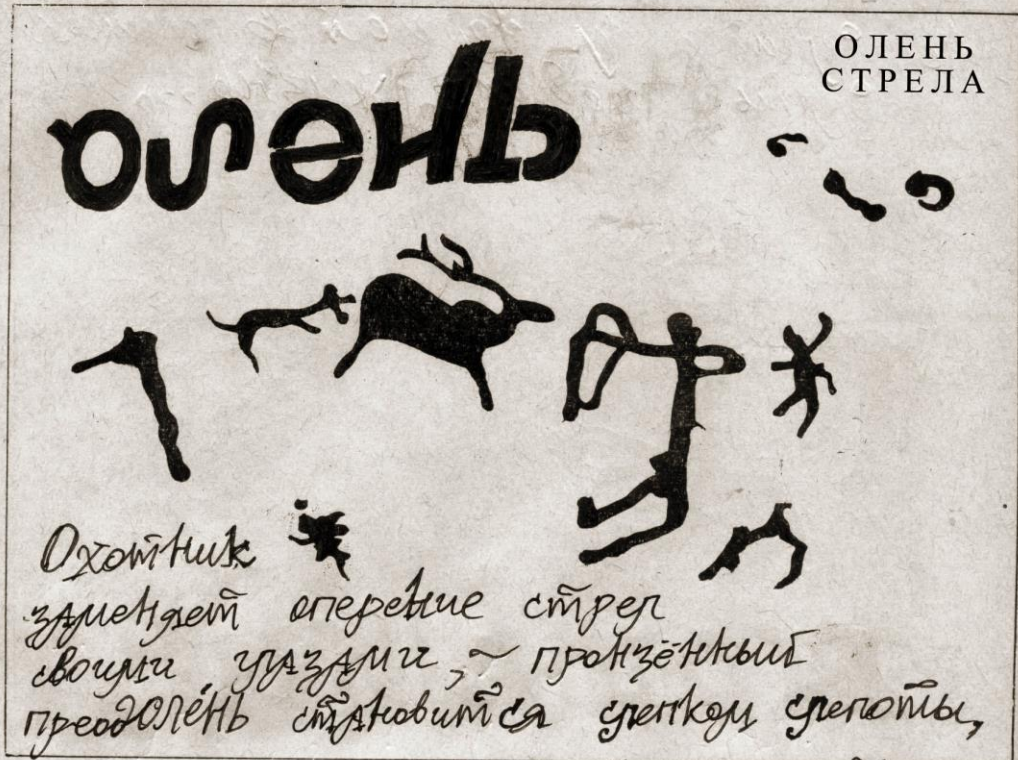 ОЛЕНЬ
СТРЕЛА
олень
Охотник
заменяет оперение стрел
своими глазами, ~ пронзённый
преодОЛЕ́НЬ становится слепком слепоты,